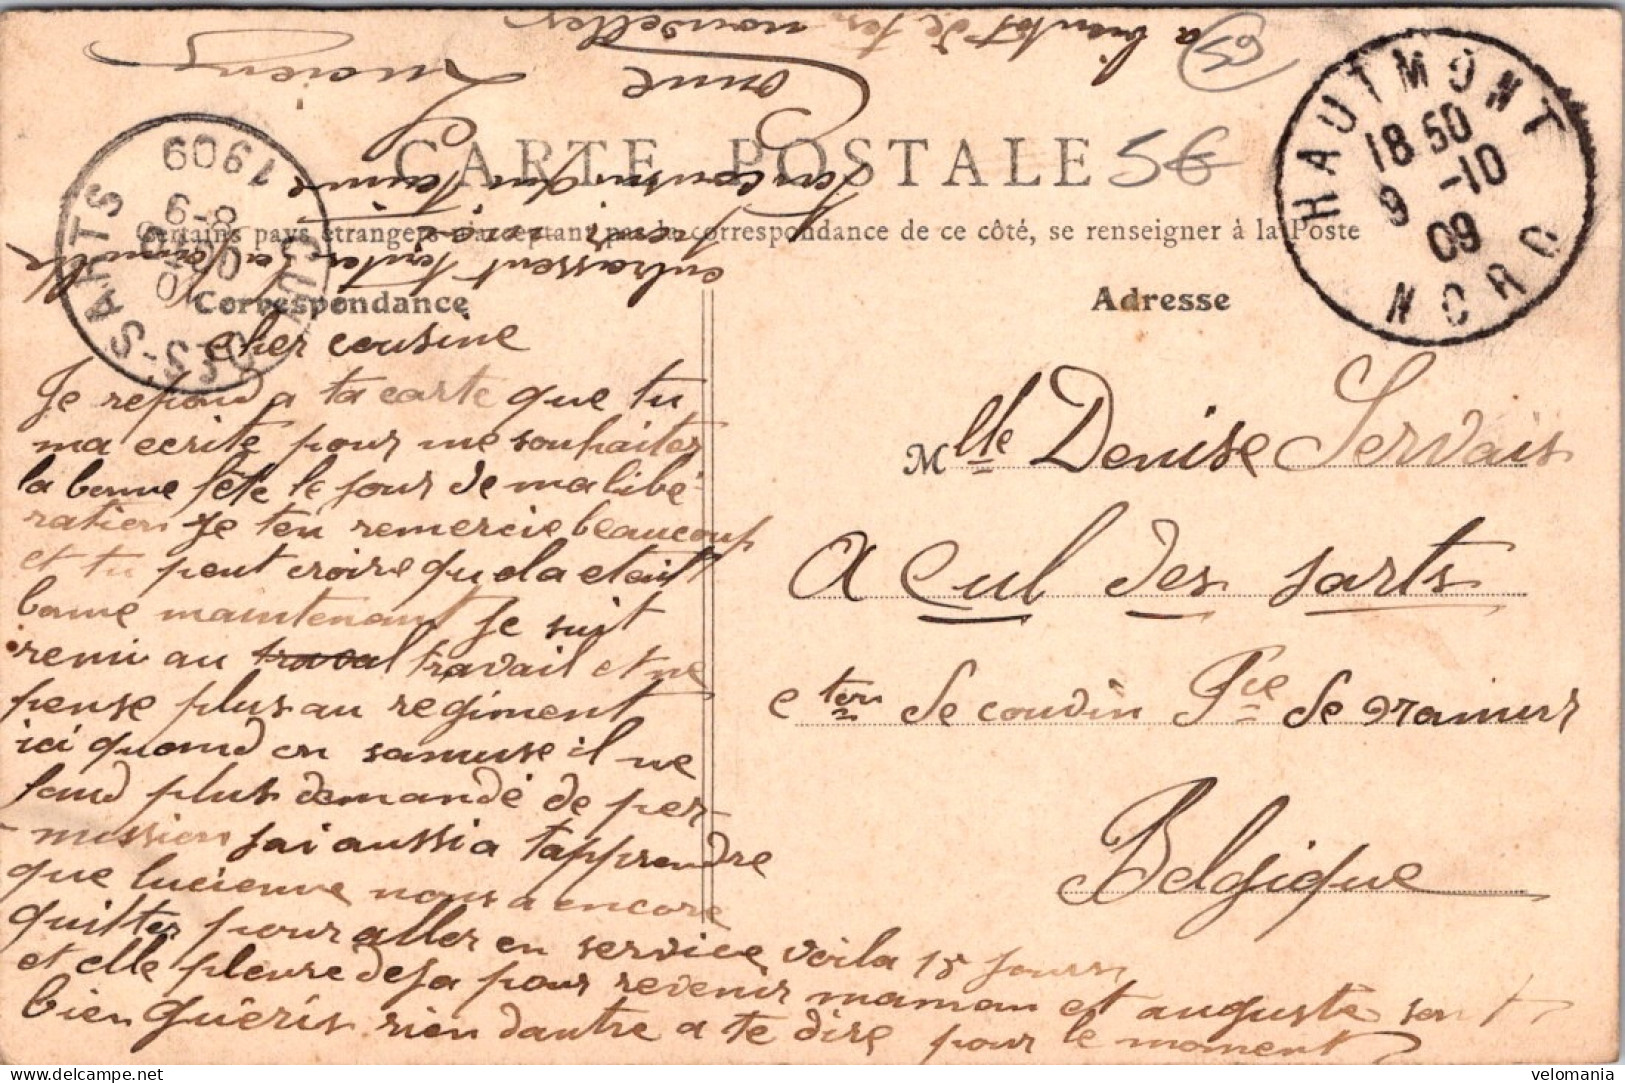 a bientot de tes nouvelles
Lucien
CARTE POSTALE
5€
ton cousin qui t'aime
Certains pays étrangers n'acceptant pas la correspondance de ce côté, se renseigner à la Poste
embrassent toutes la famille
Correspondance
Adresse
HAUTMONT
18 50
9 -10
09
NORD
1909
CUL-DES-SARTS
8-9
cher cousine
Je repond a ta carte que tu
ma ecrite pour me souhaiter
la bonne fête le jour de ma libé-
ration je ten remercie beaucoup
et tu peut croire quela etait
bonne maintenant je suit
remi au traval travail et ne
pense plus au regiment
ici quand on samuse il ne
faud plus demandé de per-
mission jai aussi a tapprendre
que lucienne nous a encore
quitter pour aller en service, voila 15 jours
et elle pleure deja pour revenir maman et auguste sont
bien guéris rien dautre a te dire pour le moment
Mlle Denise Servais
A Cul des sarts
cton de couvin Pce de Namur
Belgique
velomania